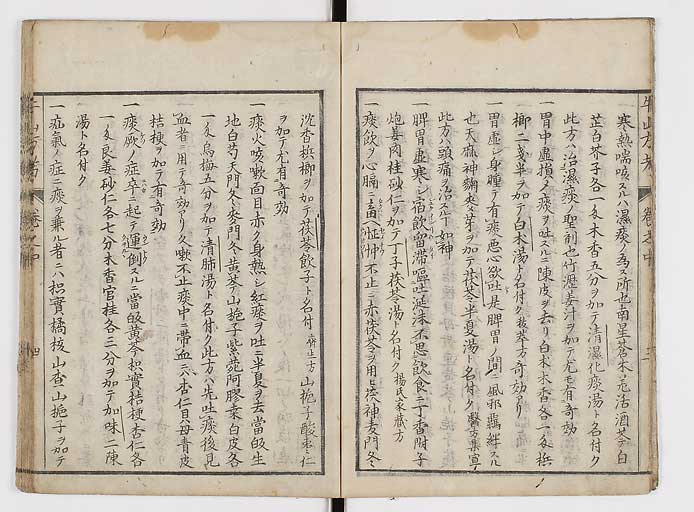 寒熱喘咳スルハ濕痰ノ為ス所也南星蒼朮羌活酒芩白
芷白芥子各一匁木香五分ヲ加テ清濕化痰湯ト名付ク
此方ハ治濕痰ノ聖剤也竹瀝姜汁ヲ加テ尤モ有奇効
一胃中虚損ノ痰ヲ吐スルニ陳皮ヲ去リ白朮木香各一匁梹
榔二戔半ヲ加テ白朮湯ト名付ク 奇効アリ
一胃虚シ身重テ有痰悪心欲吐是脾胃ノ間ニ風邪羈絆スル
也天麻神麹麦芽ヲ加テ茯苓半夏湯ト名付ク
此方ハ頭痛ヲ治スル丁如神
一脾胃虚寒シ宿飲留滞嘔吐涎沫不思飲食ニ丁香附子
炮姜肉桂砂仁ヲ加テ丁子茯苓湯ト名付ク 楊氏家蔵方
一痰飲ヲ心膈ニ畜ヘ怔忡不止ニ赤茯苓ヲ用ヒ茯神麦門冬
沉香梹榔ヲ加テ茯苓飲子ト名付 済生方 山梔子酸枣仁
ヲ加テ尤有奇効
一痰火咳嗽面目赤ク身熱シ紅痰ヲ吐ニ半夏ヲ去當皈生
地白芍天門冬麦門冬黄芩山梔子紫菀阿膠桑白皮各
一匁烏梅五分ヲ加テ清肺湯ト名付ク此方ハ先吐痰後見
血者ニ用テ奇効アリ久嗽不止痰中ニ帯血ニハ杏仁貝母青皮
桔梗ヲ加テ有奇効
一痰厥ノ症卒ニ起テ運倒スルニ當皈黄芩枳實桔梗杏仁各
一匁良姜砂仁各七分木香官桂各三分ヲ加テ加味二陳
湯ト名付ク
一疝氣ノ症ニ痰ヲ兼ル者ニハ枳實橘核山査山梔子ヲ加テ